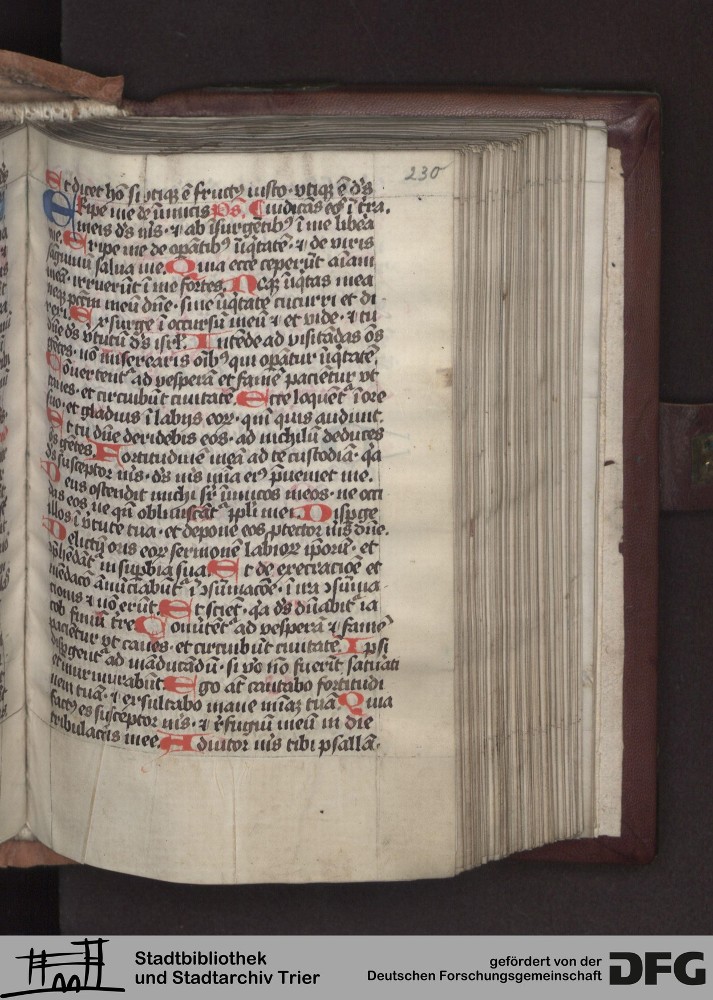 230
Et dicet hō si utiq₃ ē fruct᷒ iusto · utiq₃ ē d̄s
Eripe me de inimicis ps. iudicās eos ī t̄ra.
meis d̄s m̄s · ⁊ ab īsurgētib᷒ ī me libera
me. Eripe me de opātib᷒ īiq̄tatē · ⁊ de viris
sāguinū salua me. Quia ecce ceperūt aīam
meā · irruerūt ī me fortes. Neq₃ īiq̄tas mea
neq₃ pctm̄ meū dn̄e · sine īiq̄tate cucurri et di
rexi. Exsurge ī occursū meū ⁊ et vide · ⁊ tu
dn̄e d̄s v̄tutū d̄s isrl̄. Intēde ad visitādas ōs
gētes · nō miserearis oīb᷒ qui opātur īiq̄tatē.
Cōuertent᷑ ad vesperā et famē paciētur vt
canes · et circuibūt ciuitatē. Ecce loquēt᷑ ī ore
suo · et gladius ī labijs eoꝝ · qm̄ quis audiuit.
Et tu dn̄e deridebis eos · ad nichilū deduces
ōs gētes. Fortitudinē meā ad te custodiā · q̄a
d̄s susceptor m̄s · d̄s m̄s mīa ei᷒ p̄ueniet me.
Deus ostendit michi sr̄ inimicos meos · ne occi
das eos ne qn̄ obliuiscāt᷑ ppl̄i mei. Disp̄ge
illos ī v̄tute tua · et depone eos ꝓtector m̄s dn̄e.
Delictū oris eoꝝ sermonē labioꝝ ipoꝝ · et
ꝯp̄hēdāt᷑ in sup̄bia sua. Et de execracioē et
mēdacō ānūciabūt᷑ ī ꝯsūmacōe · ī ira ꝯsūma
cionis ⁊ nō erūt. Et sciēt · q̄a d̄s dn̄abit᷑ ia
cob finiū t̄re. Conūtēt᷑ ad vesperā ⁊ famē
paciētur vt canes · et circuibūt ciuitatē. Ipsi
disp̄gent᷑ ad māducādū · si v̄o nō fuerīt saturati
et murmurabūt. Ego aūt cantabo fortitudi
nem tuā · ⁊ exsultabo mane mīaꝫ tuā. Quia
fact᷒ es susceptor m̄s · ⁊ r̄fugiū meū in die
tribulac̄ois mee. Adiutor m̄s tibi psallā ·
Stadtbibliothek
und Stadtarchiv Trier
gefördert von der
Deutschen Forschungsgemeinschaft DFG